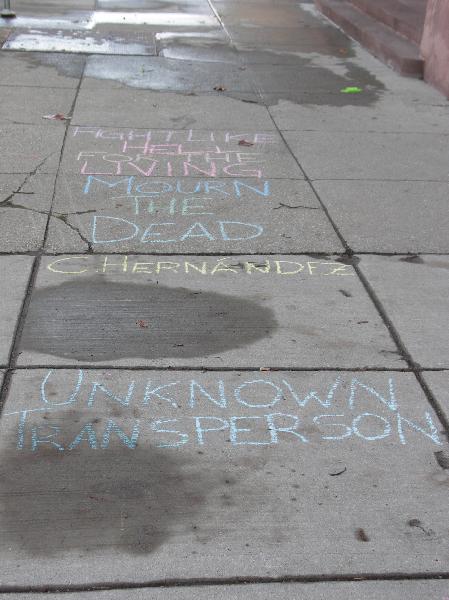 FIGHT LIKE
HELL
FOR THE
LIVING
MOURN
THE
DEAD
C. HERNÁNDEZ
UNKNOWN
TRANSPERSON